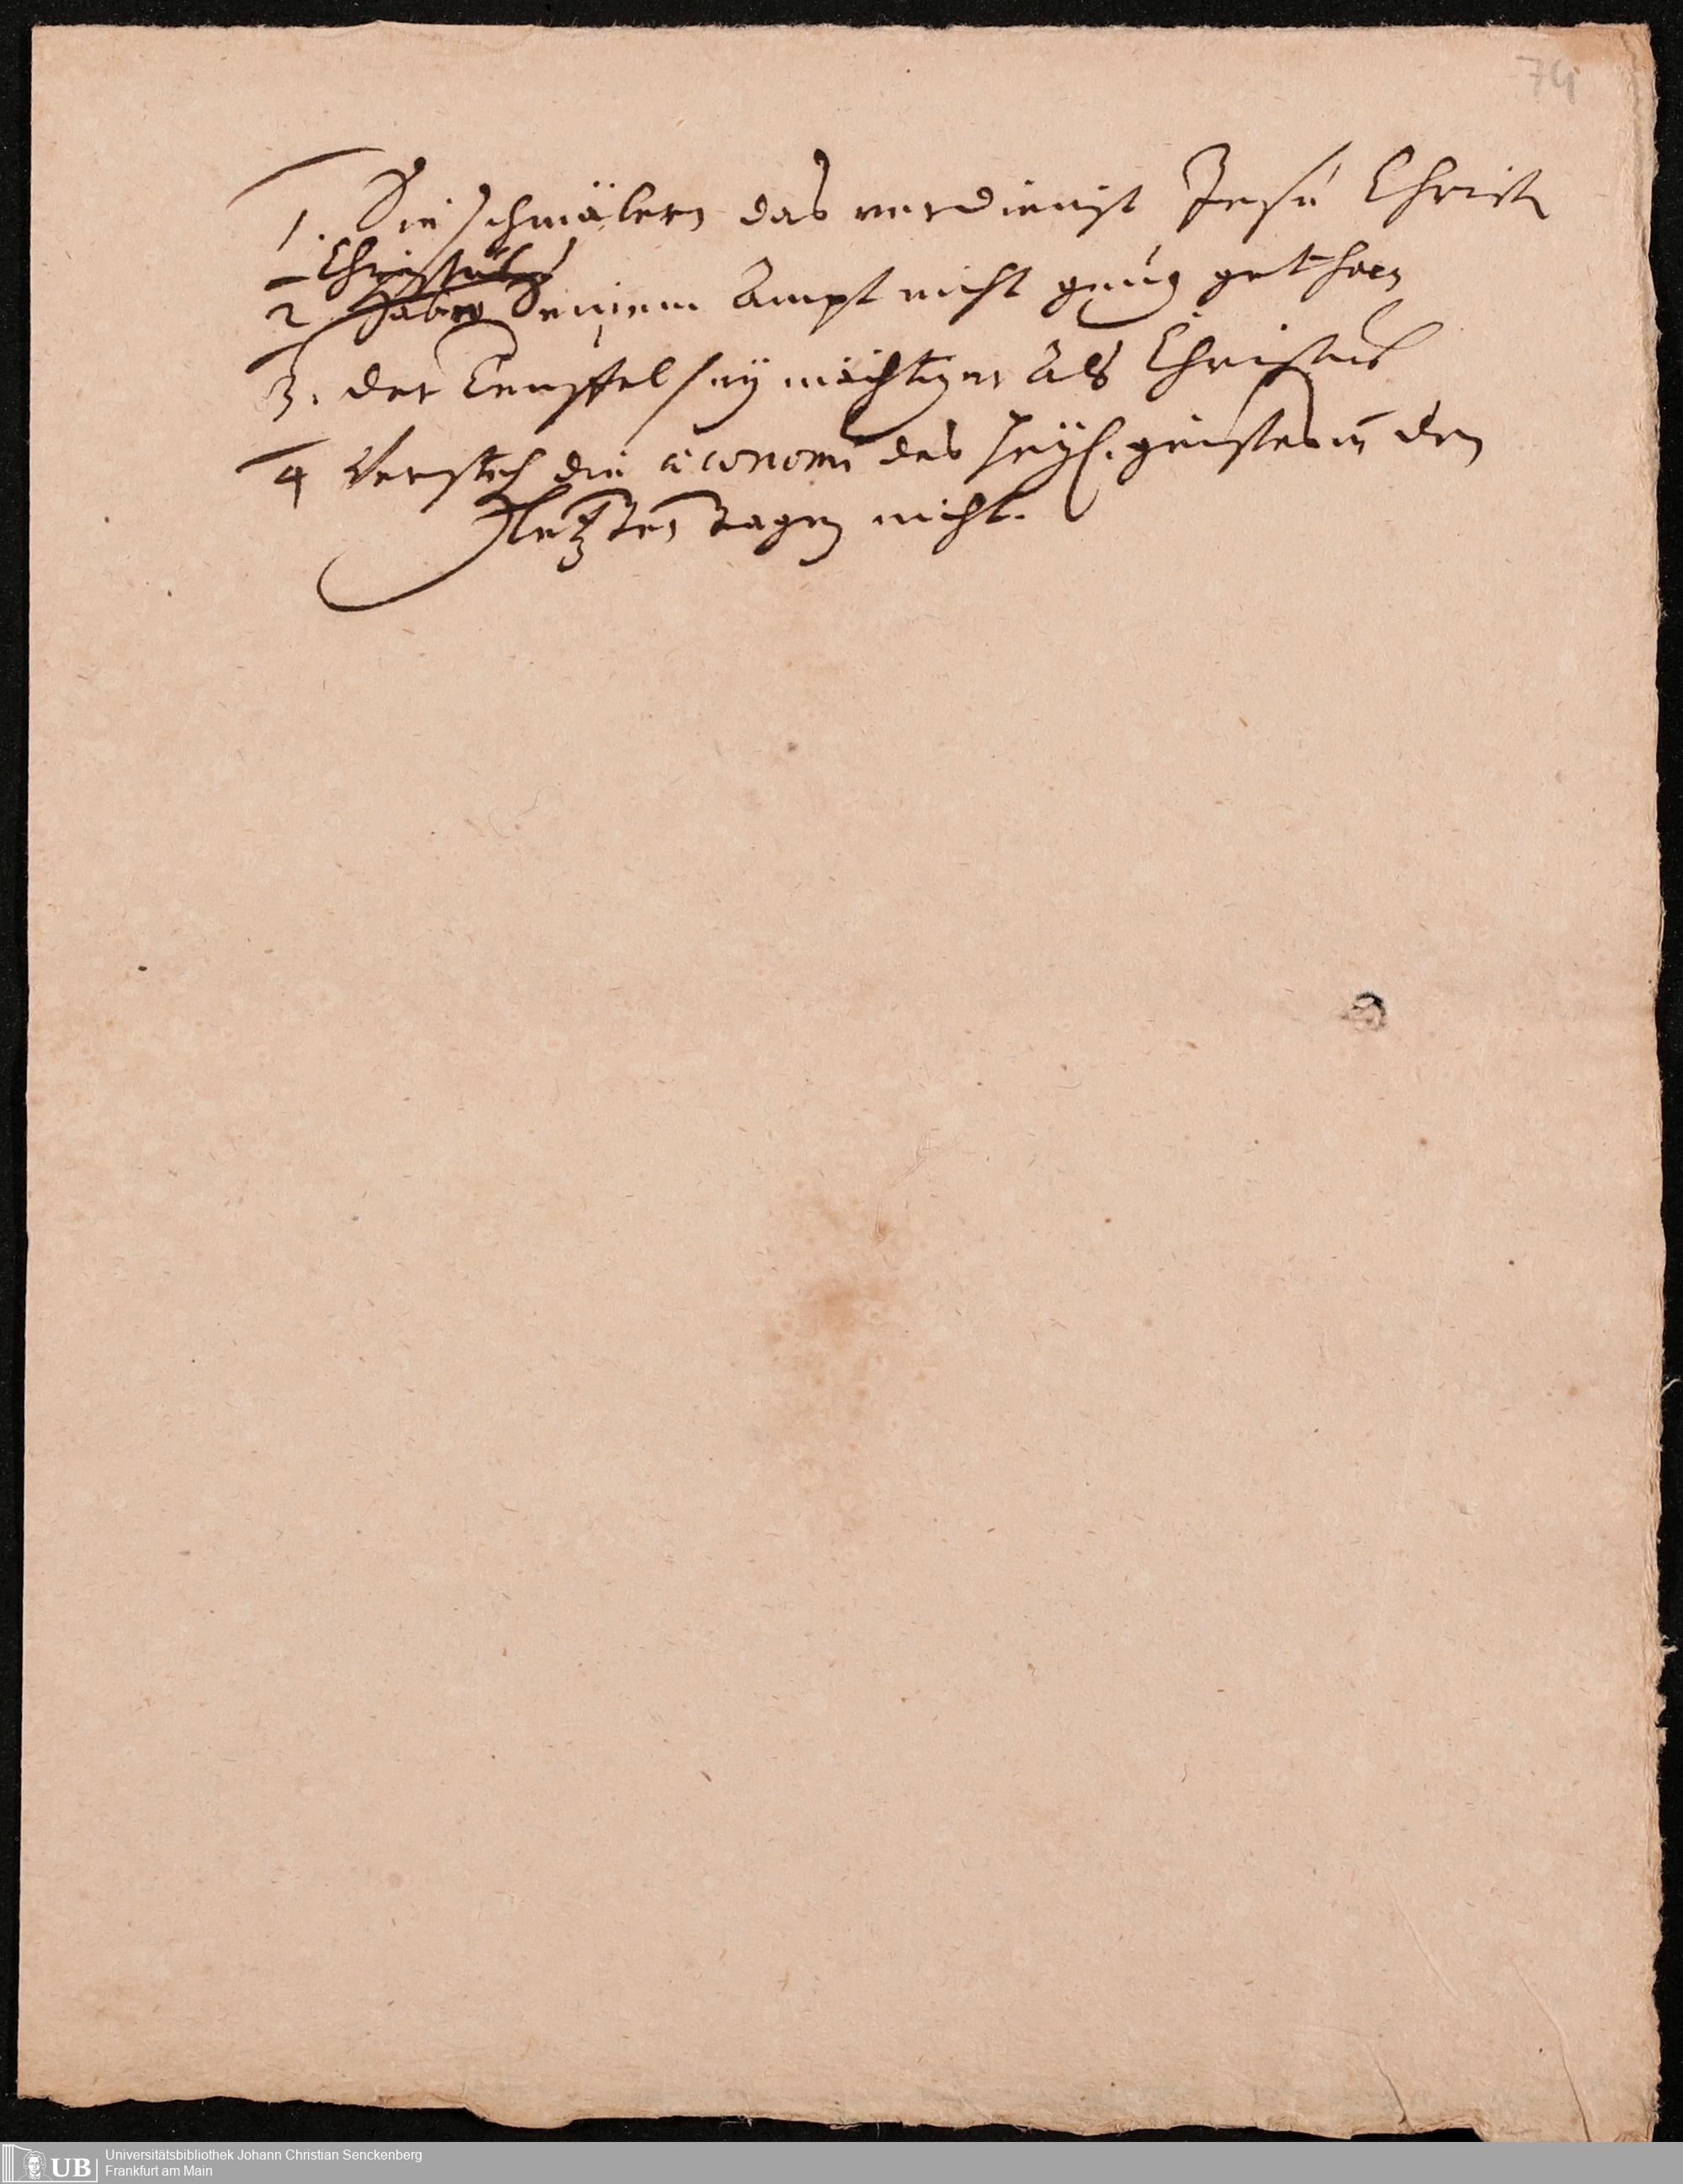 74
1. Sie schmälern das verdienst Jesu Christi
Christus
2 habe Seinem Ampt nicht genug gethan
3. der Teuffel sey mächtiger als Christus
4 Versteh die œconomi des Heyl. geistes in den
letzten tagen nicht.
UB Universitätsbibliothek Johann Christian Senckenberg
Frankfurt am Main